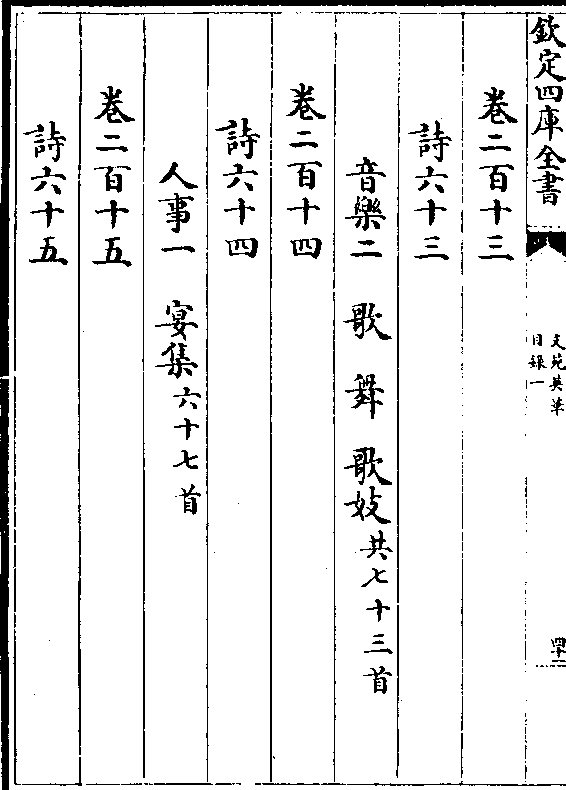 欽定四庫全書
文苑英華
目録一
卷二百十三
詩六十三
音樂二 歌 舞 歌妓共七十三首
卷二百十四
詩六十四
人事一 宴集六十七首
卷二百十五
詩六十五